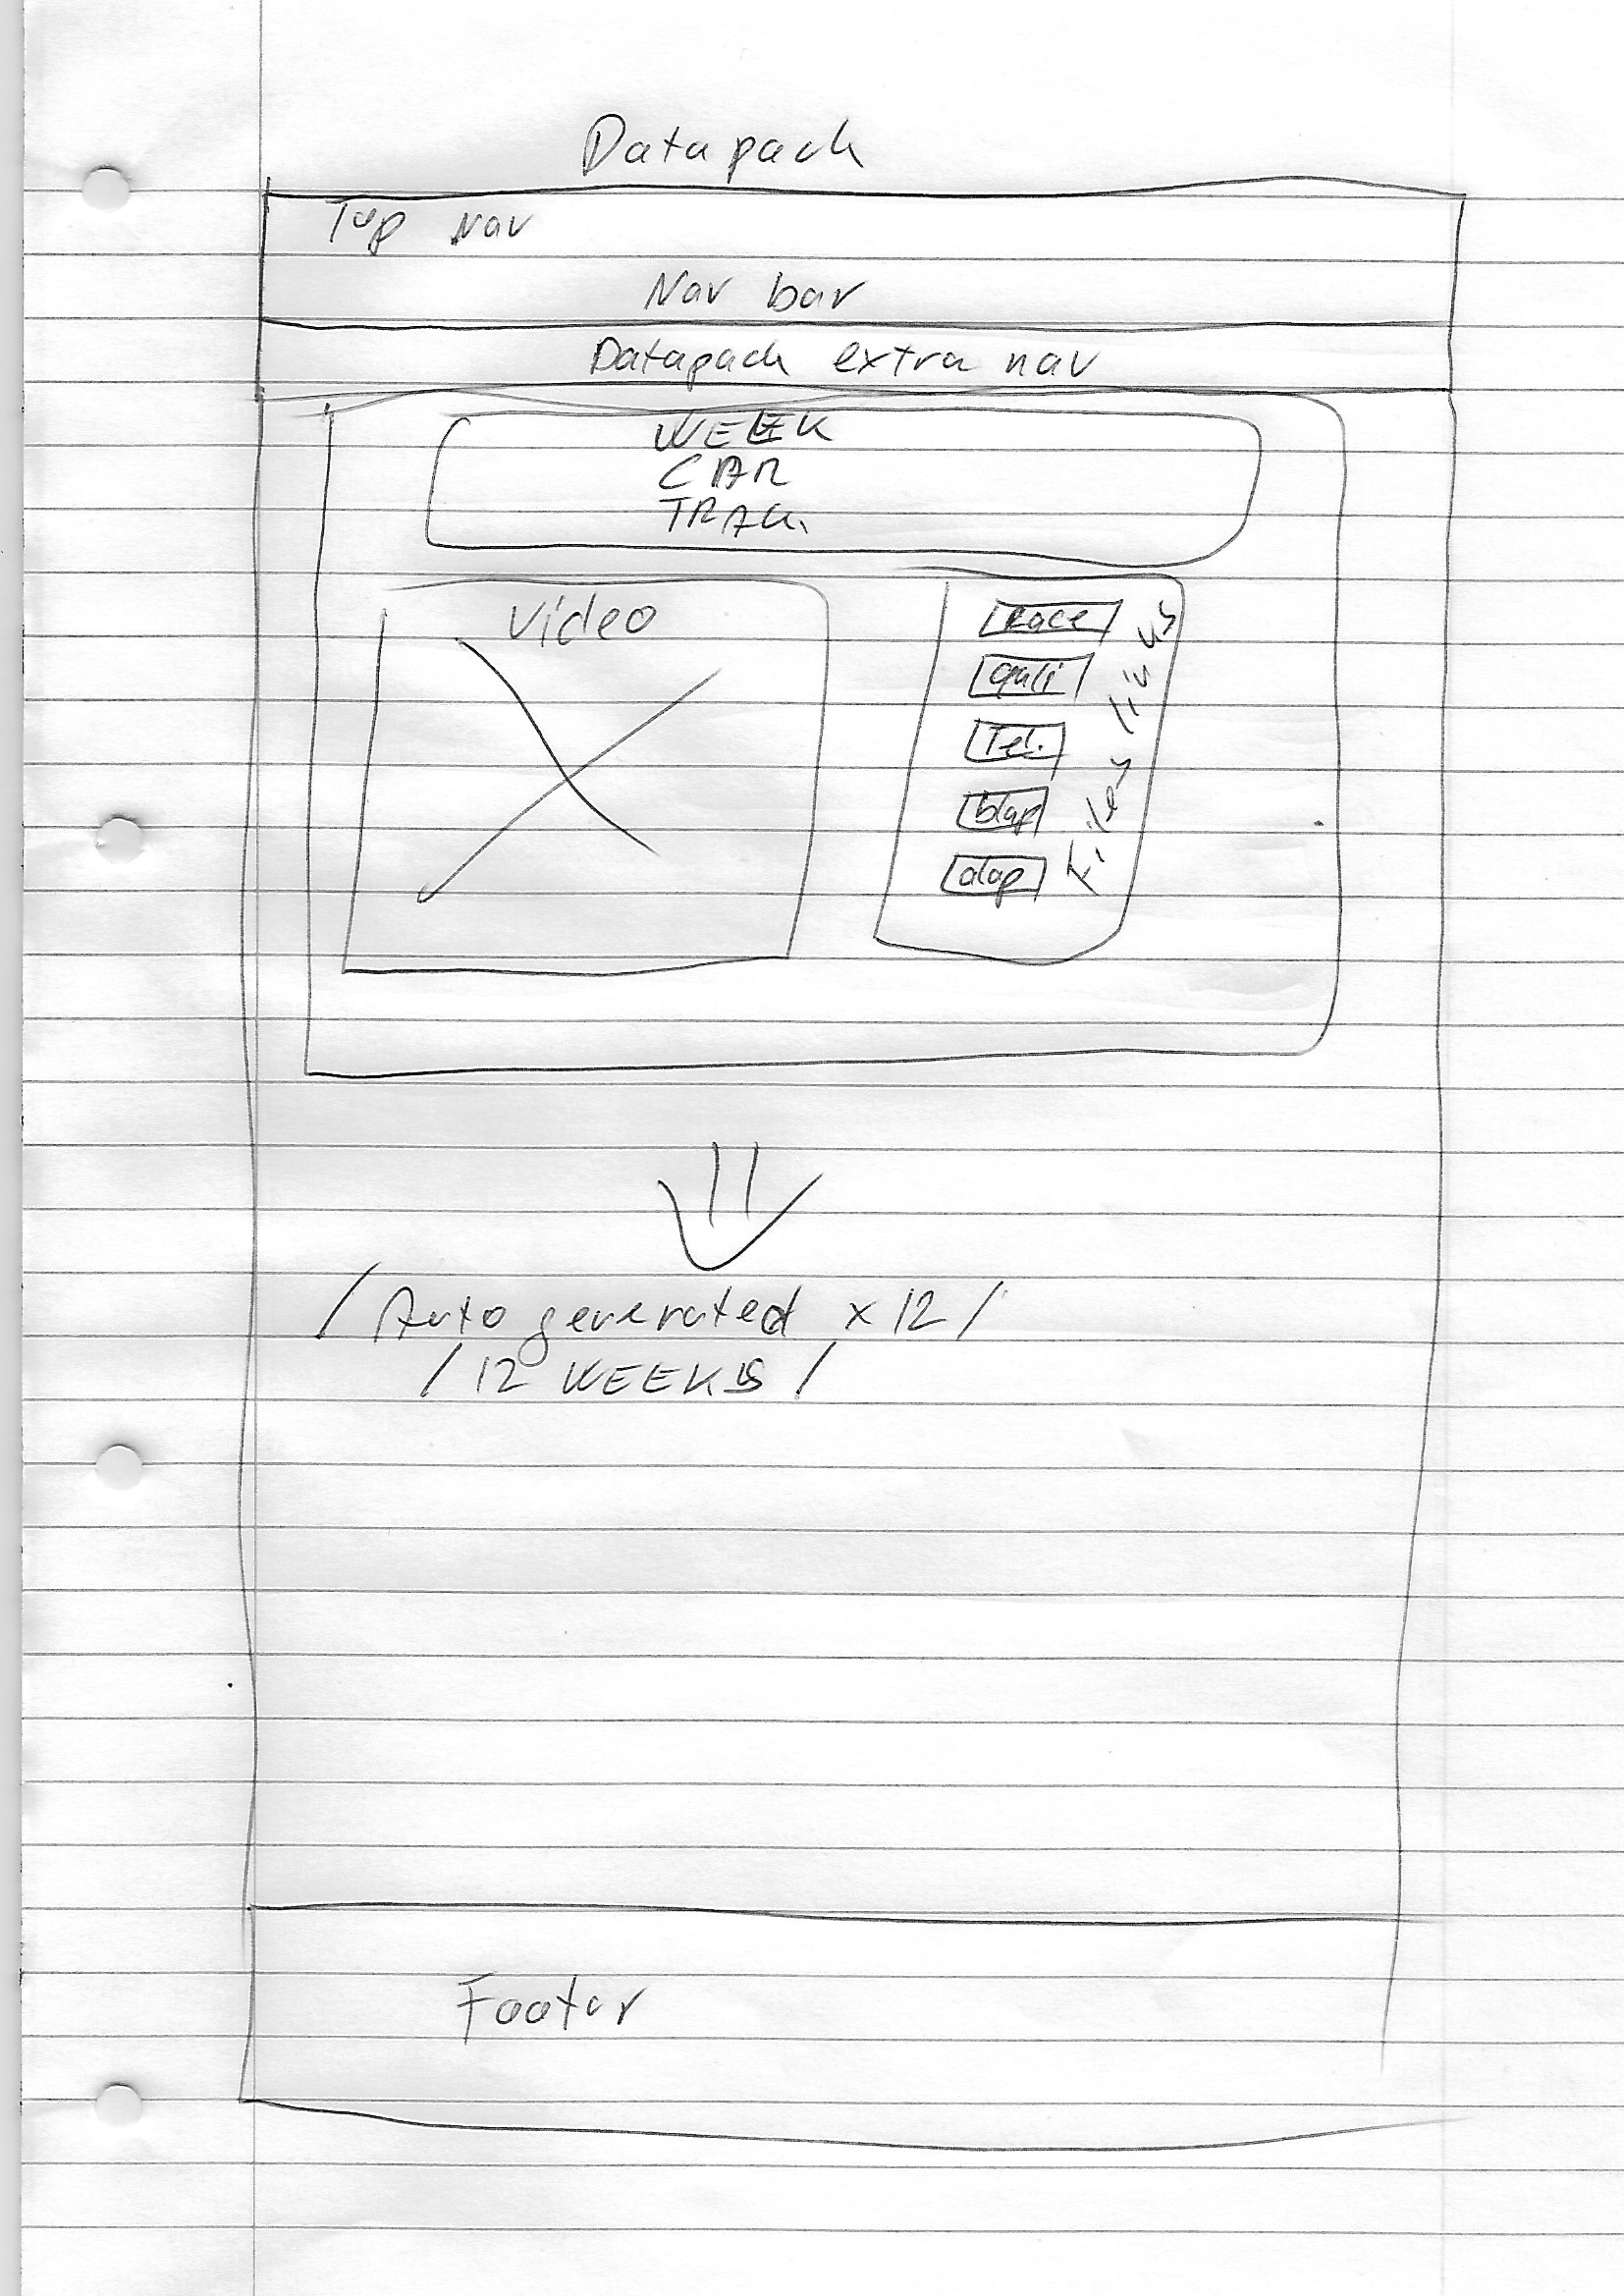 Datapack
Top Nav
Nav bar
Datapack extra nav
WEEK
CAR
TRACK
Video
Race
quli
Tel.
blap
alap
Files links
/ Auto generated x 12 /
/ 12 WEEKS /
Footer